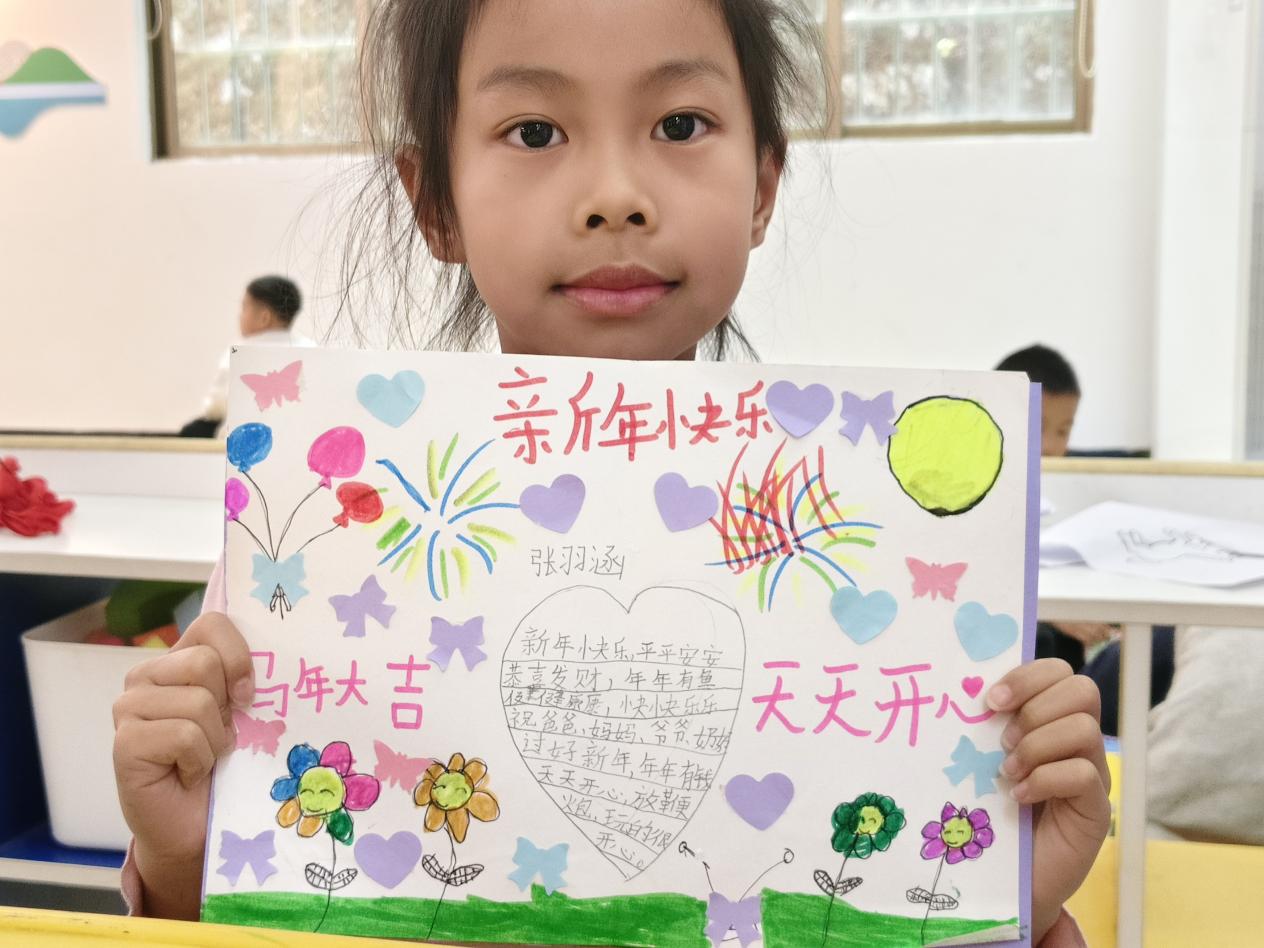 亲斤年快乐
张羽涵
新年小快乐,平平安安
恭喜发财,年年有鱼
健康,小快小快乐乐
祝爸爸、妈妈、爷爷、奶奶
过好新年,年年有钱
天天开心,放鞭
火包、玩的很
开心。
马年大吉
天天开心